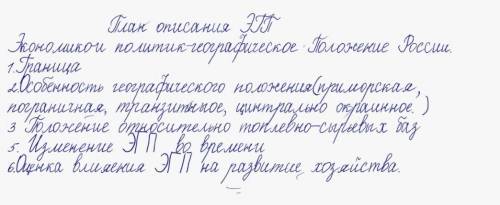 План описания ЭГП
Экономикои политик-географическое Положение России.
1. Граница
2.Особенность географического положения(приморская,
пограничная, транзитныое, цинтрально окраинное.)
3 Положение относительно топлевно-сырьевых баз
5. Изменение ЭГП во времени
6.Оценка влияения ЭГП на развитие хозяйства.